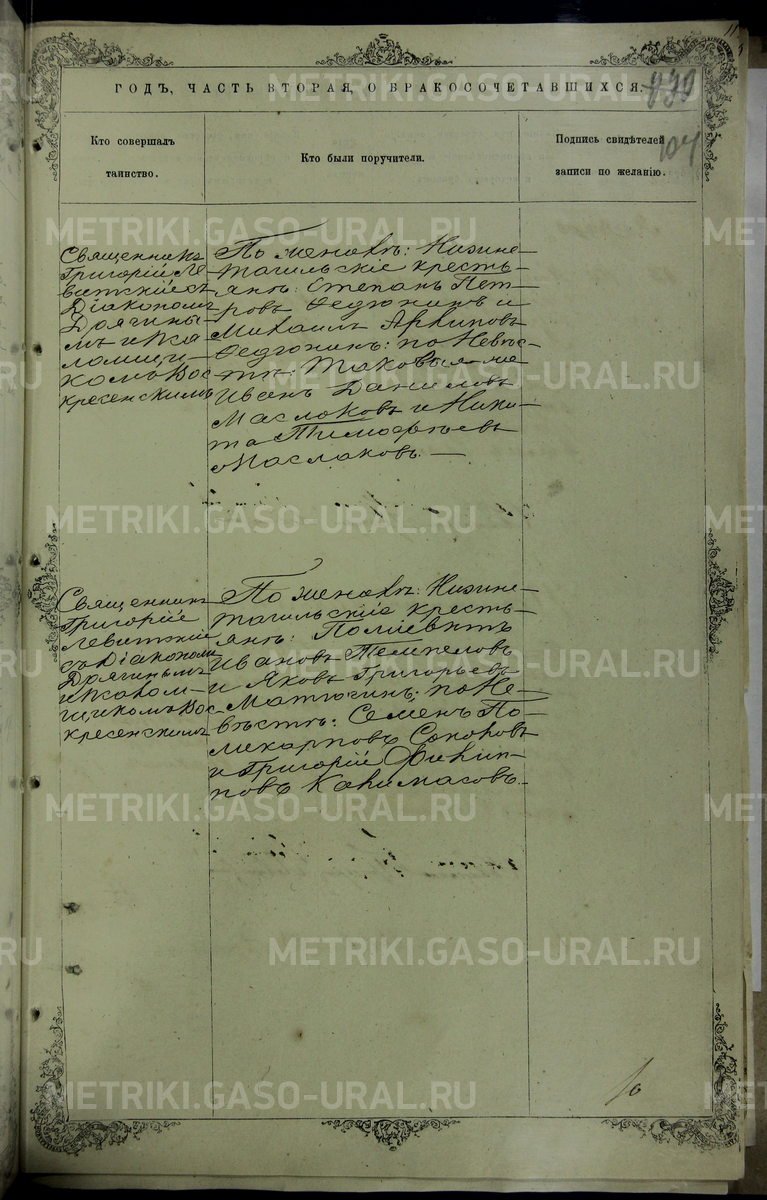 ГОДЪ, ЧАСТЬ ВТОРАЯ, О БРАКОСОЧЕТАВШИХСЯ.
Кто совершалъ
таинство.
Кто были поручители.
Подпись свидѣтелей
записи по желанію.
107
Священникъ
Григорій Ле-
витскій съ
Діакономъ
Дрягины-
мъ и Пса
ломщи-
комъ Вос-
кресенскимъ
По женихѣ: Нижне-
тагильскіе кресть-
яне: Степанъ Пет-
ровъ Федюнинъ и
Михаилъ Архиповъ
Федюнинъ: по Невѣс-
тѣ: таковые-же
Иванъ Даниловъ
Маслаковъ и Ники-
та Тимофѣевъ
Маслаковъ.—
Священникъ
Григорій
Левитскій
съ Діакономъ
Дрягинымъ
и Псалом-
щикомъ Вос-
кресенскимъ
По женихѣ: Нижне-
тагильскіе кресть-
яне:
Ивановъ
и Яковъ Григорьевъ
Матюгинъ; по Не-
вѣстѣ: Семенъ По-
ликарповъ
и Григорій Филип-
повъ
METRIKI.GASO-URAL.RU